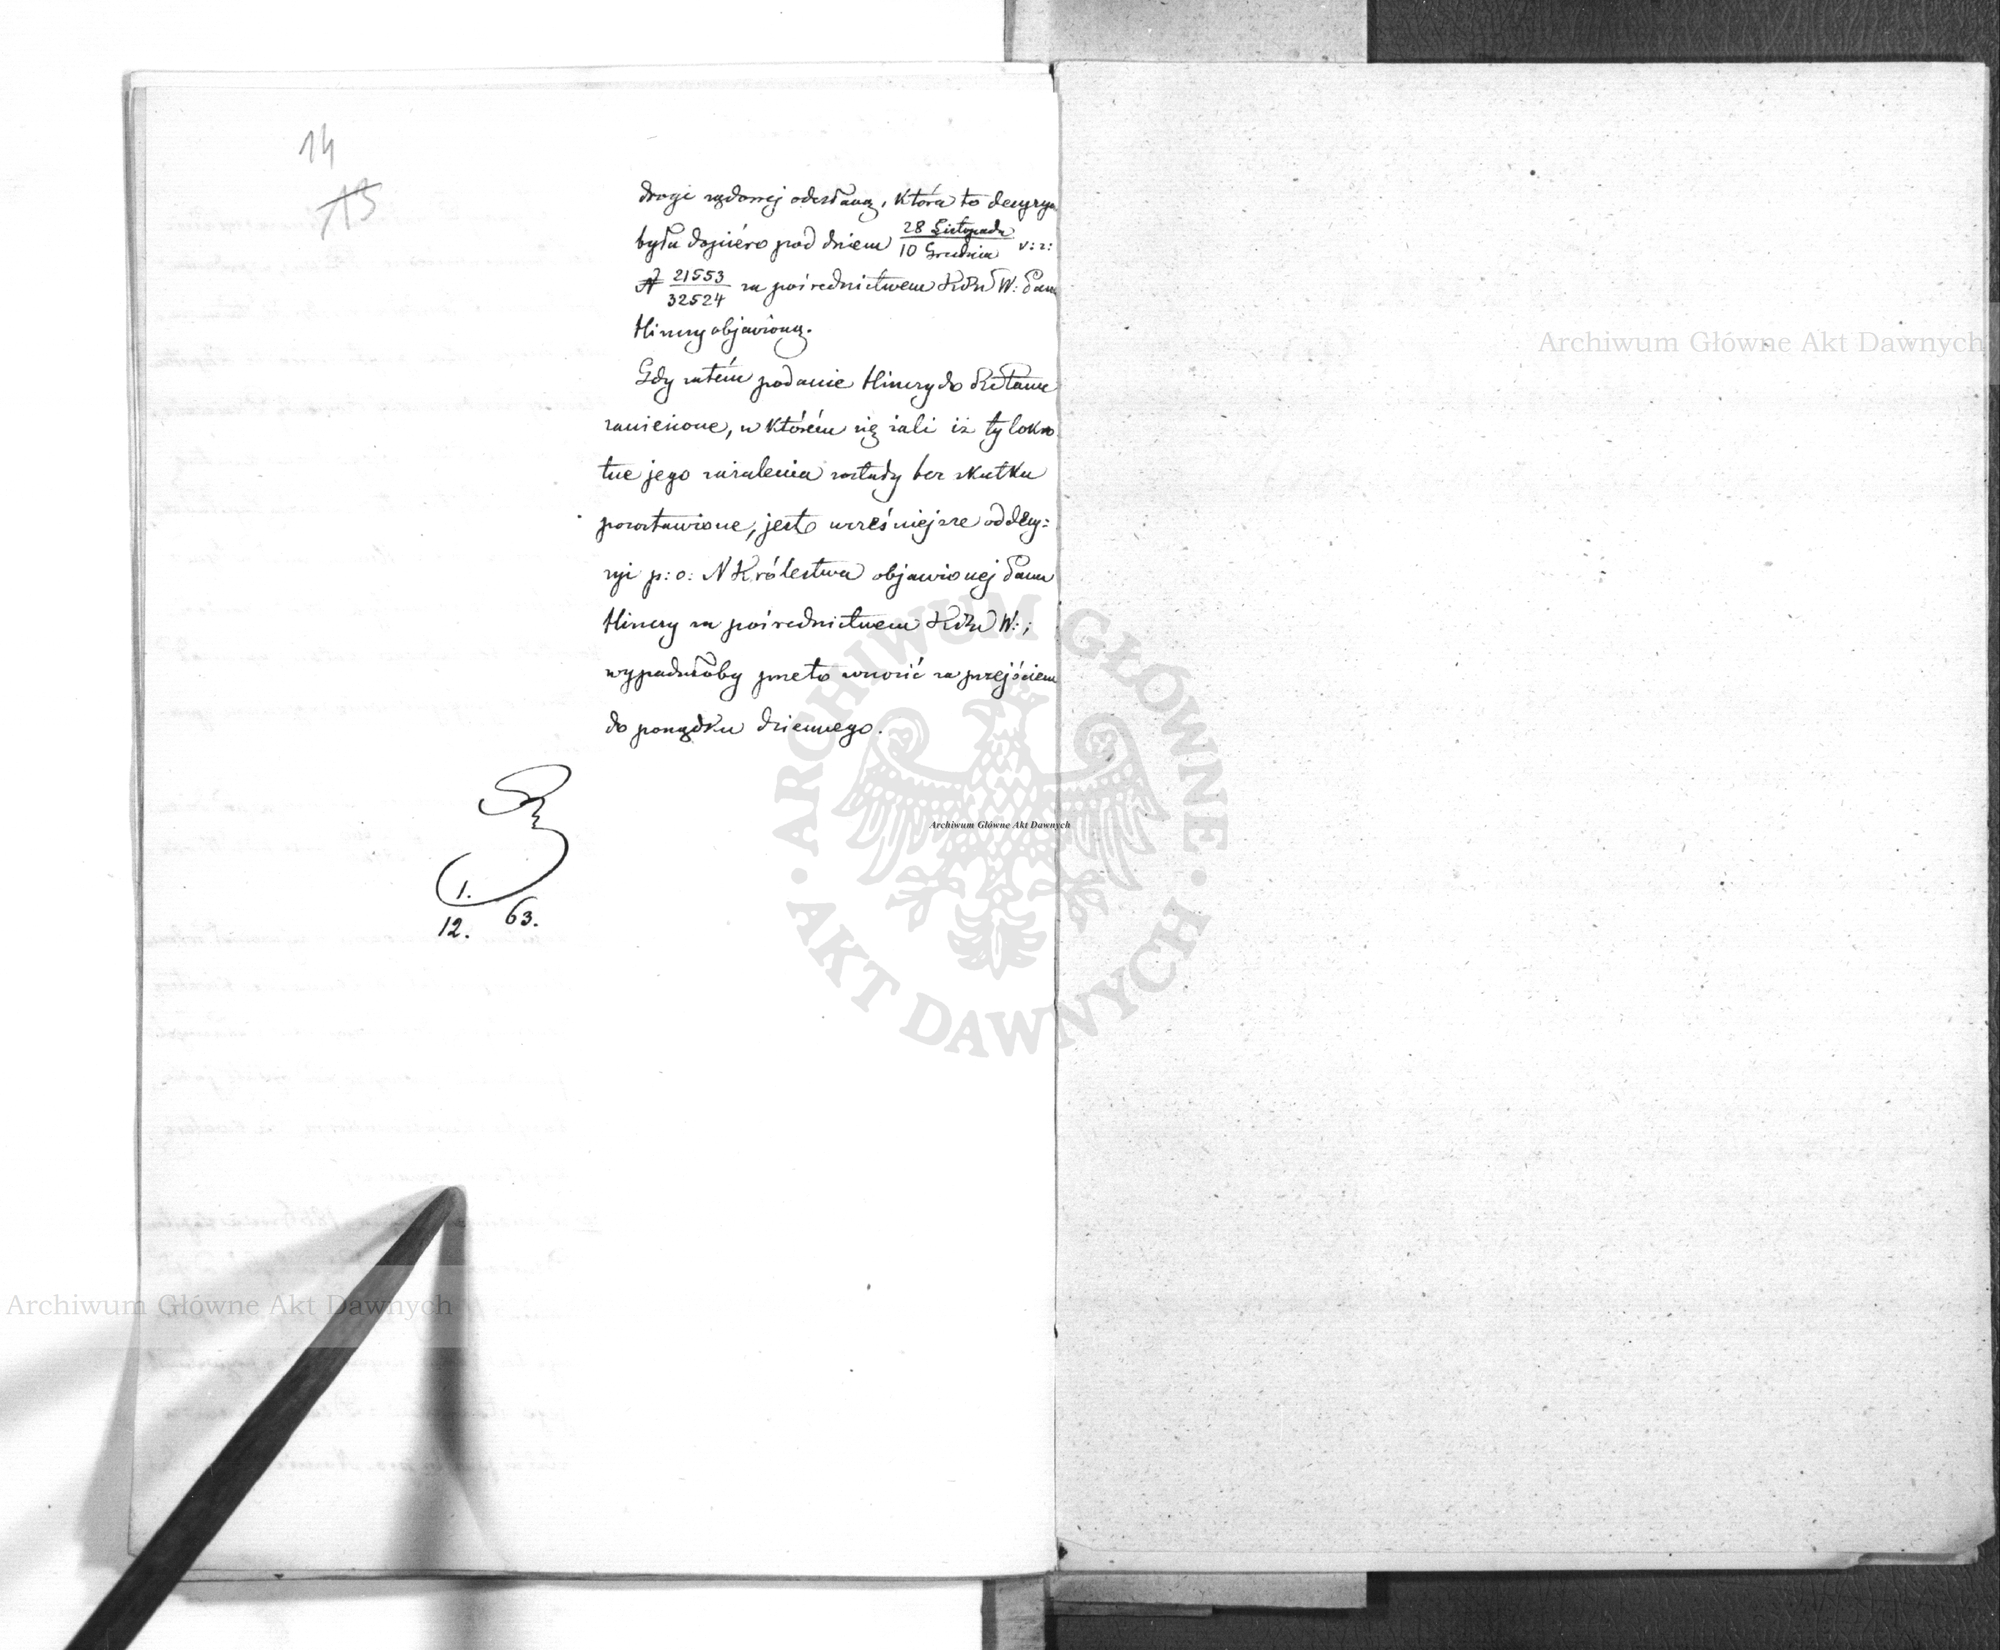 14
13
drogi rządowej odesłaną, która to decyzya
była dopiéro pod dniem 28 Listopada / 10 Grudnia v: r:
N 21553 / 32524 za pośrednictwem KRz W: Panu
Hinczy objawioną.
Gdy zatém podanie Hinczy do
zaniesione, w którém się żali iż tylokro
tne jego zażalenia zostały bez skutku
pozostawione, jest wcześniejsze od decy:
zyi p: o: N Królestwa objawionej Panu
Hinczy za pośrednictwem KRz W:;
wypadałoby przeto wnosić za przejściem
do porządku dziennego.
1.
12. 63.
Archiwum Główne Akt Dawnych
Archiwum Główne Akt Dawnych
Archiwum Główne Akt Dawnych
ARCHIWUM GŁÓWNE
AKT DAWNYCH